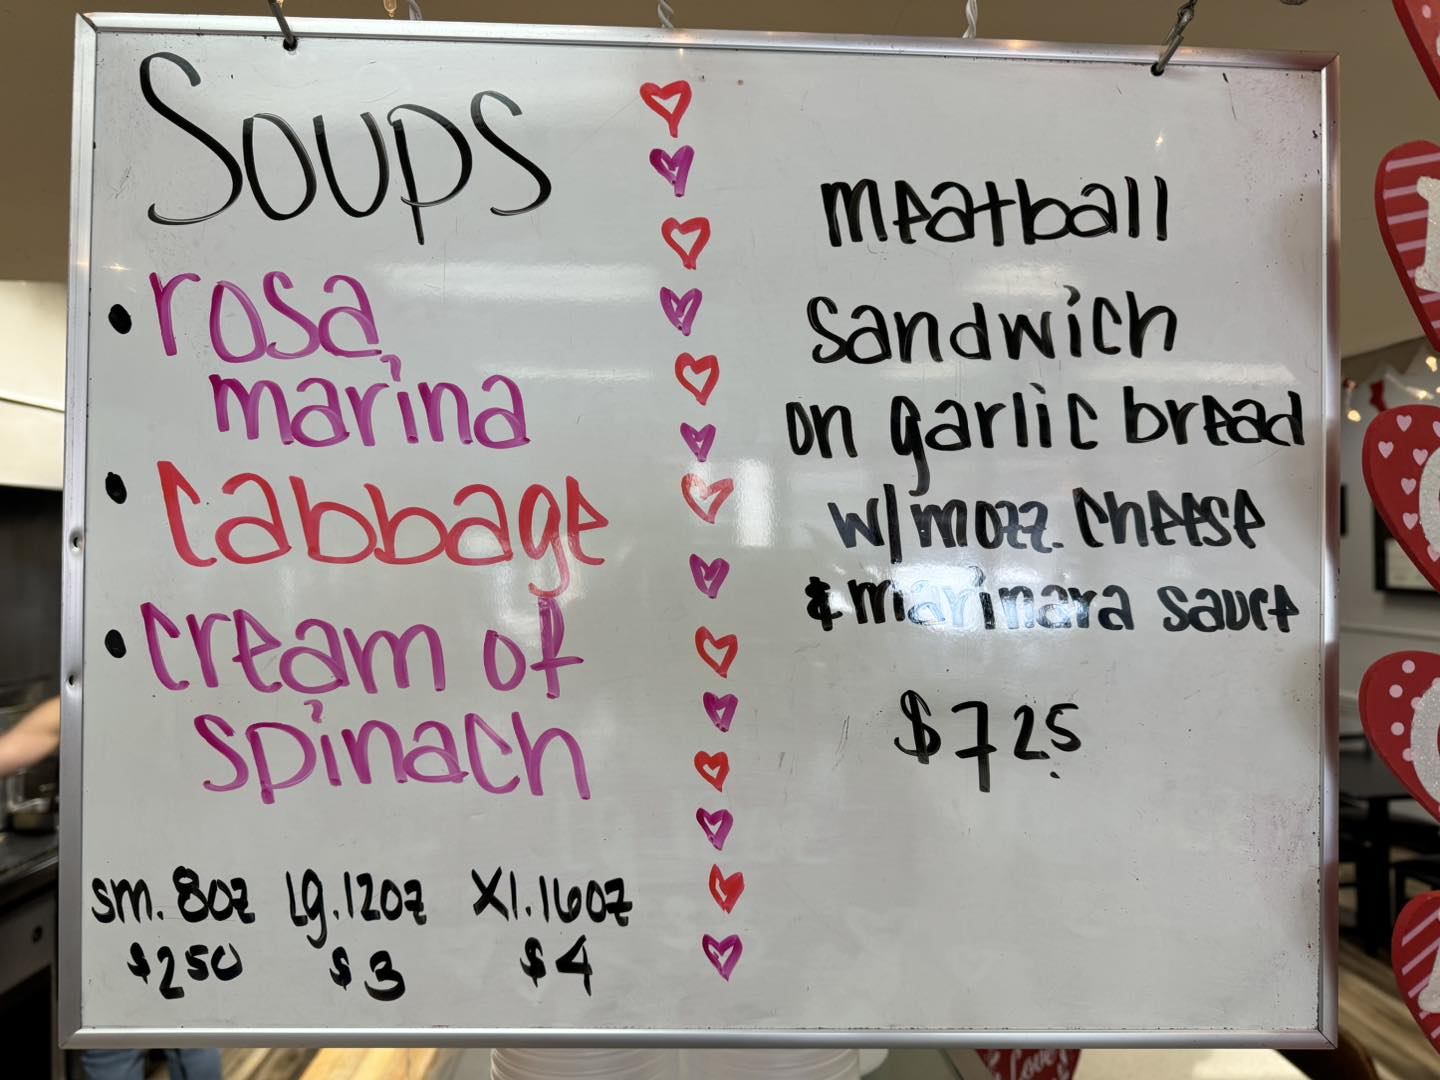 Soups
• rosa
marina
• cabbage
• cream of
spinach
sm. 8oz lg. 12oz Xl. 16oz
$250 $3 $4
meatball
sandwich
on garlic bread
w/mozz. cheese
& marinara sauce
$725
Love